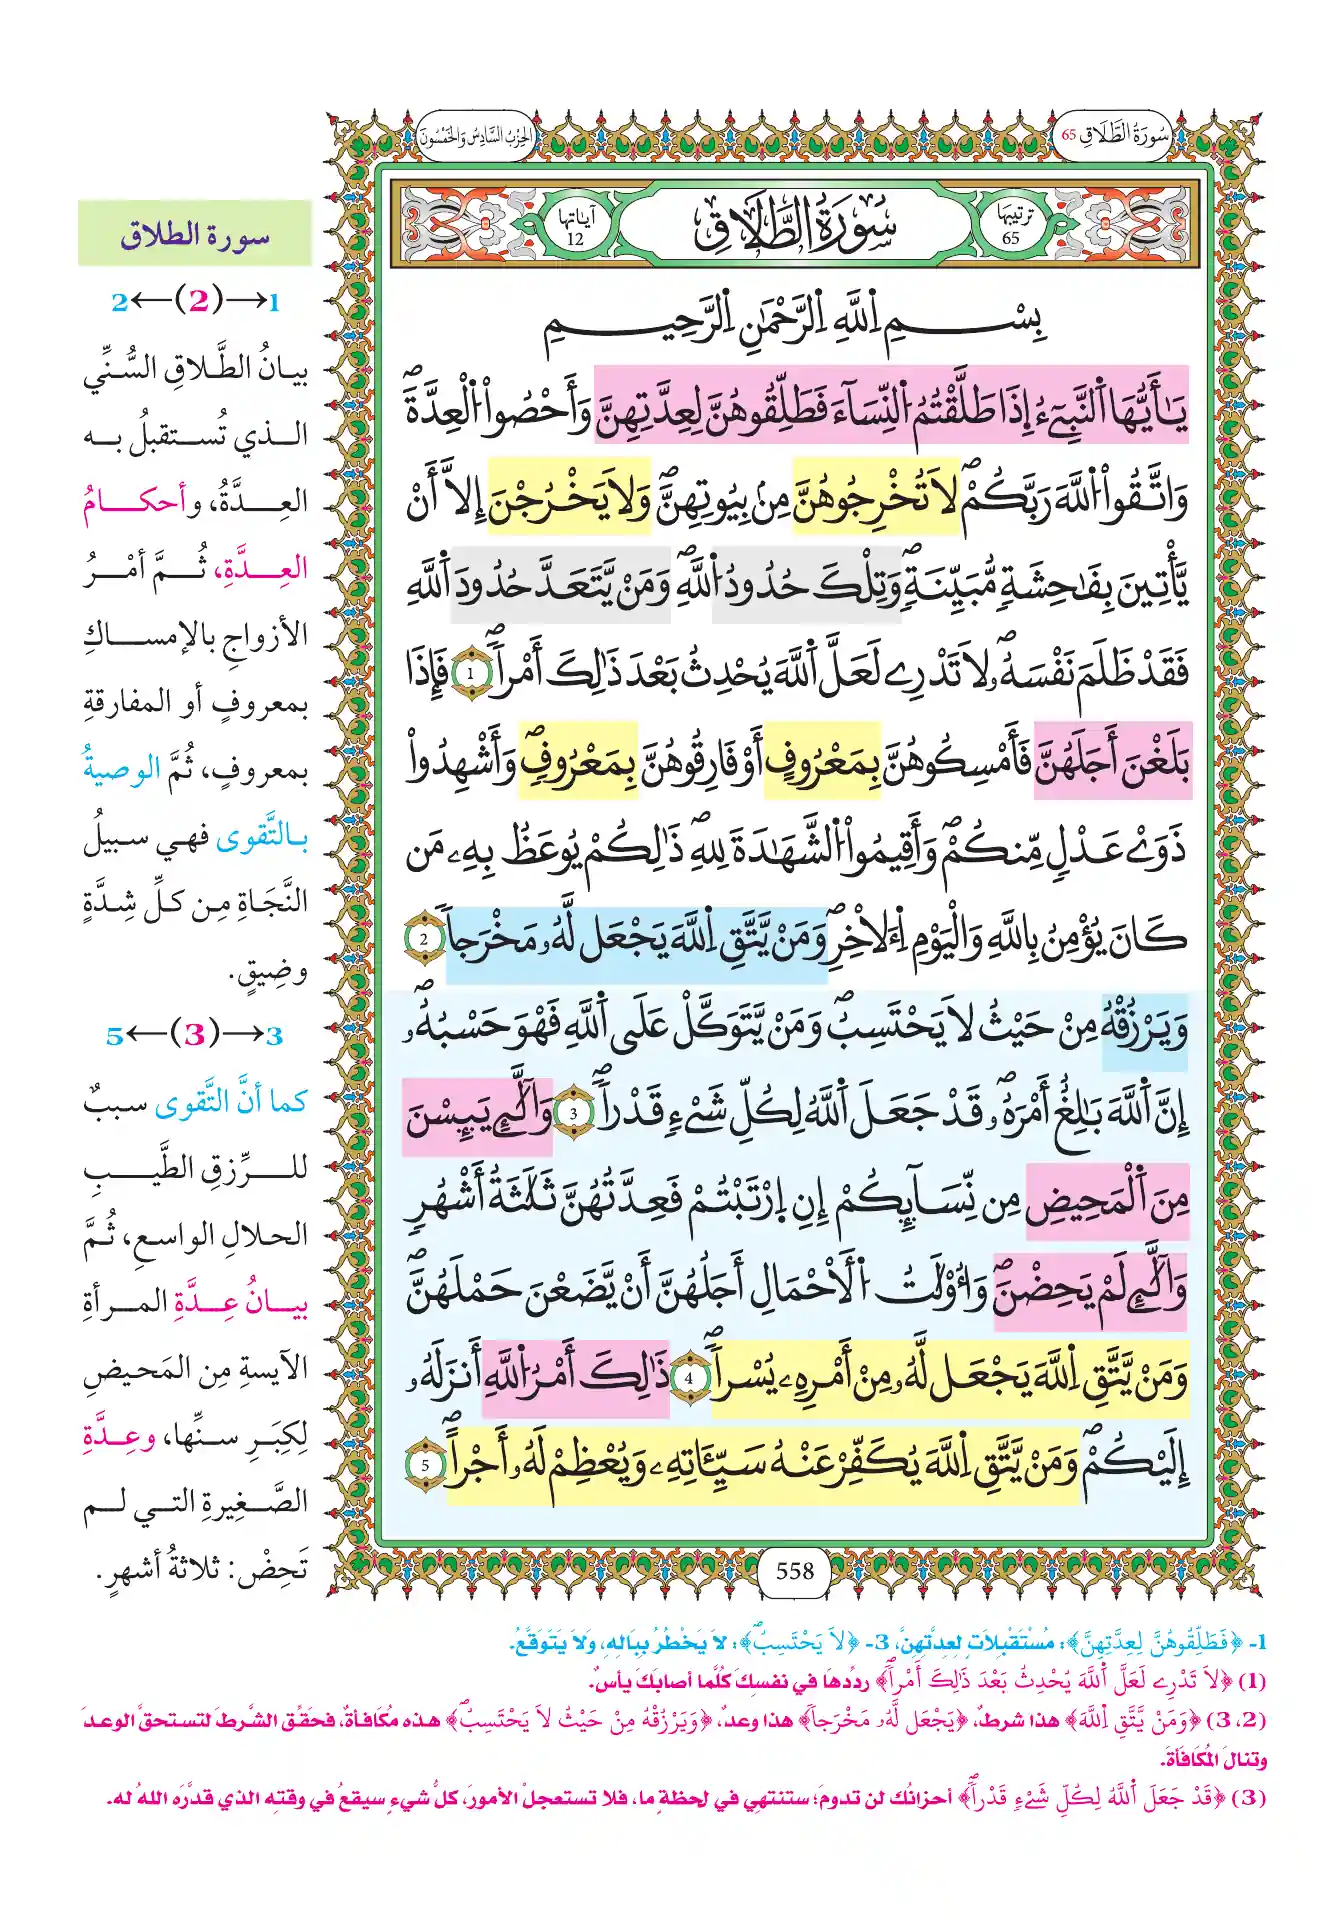 سُورَةُ الطَّلَاقِ 65
الحِزْبُ السَّادِسُ وَالخَمْسُونَ
ترتيبها 65
سُورَةُ الطَّلَاقِ
آياتها 12
بِسْمِ اِللَّهِ اِلرَّحْمَٰنِ اِلرَّحِيمِ
يَٰٓأَيُّهَا اَلنَّبِيٓءُ اِ۪ذَا طَلَّقْتُمُ اُلنِّسَآءَ فَطَلِّقُوهُنَّ لِعِدَّتِهِنَّ وَأَحْصُواْ اُلْعِدَّةَۖ
وَاتَّقُواْ اُللَّهَ رَبَّكُمْۖ لَا تُخْرِجُوهُنَّ مِنۢ بِيُوتِهِنَّۖ وَلَا يَخْرُجْنَ إِلَّآ أَنْ
يَّأْتِينَ بِفَٰحِشَةٖ مُّبَيِّنَةٖۖ وَتِلْكَ حُدُودُ اُللَّهِۖ وَمَنْ يَّتَعَدَّ حُدُودَ اَللَّهِ
فَقَدْ ظَلَمَ نَفْسَهُۥۖ لَا تَدْرِے لَعَلَّ اَللَّهَ يُحْدِثُ بَعْدَ ذَٰلِكَ أَمْراٗۖ 1 فَإِذَا
بَلَغْنَ أَجَلَهُنَّ فَأَمْسِكُوهُنَّ بِمَعْرُوفٍ أَوْ فَارِقُوهُنَّ بِمَعْرُوفٖۖ وَأَشْهِدُواْ
ذَوَےْ عَدْلٖ مِّنكُمْۖ وَأَقِيمُواْ اُلشَّهَٰدَةَ لِلهِۖ ذَٰلِكُمْ يُوعَظُ بِهِۦ مَن
كَانَ يُؤْمِنُ بِاللَّهِ وَالْيَوْمِ اِ۬لَاخِرِۖ وَمَنْ يَّتَّقِ اِللَّهَ يَجْعَل لَّهُۥ مَخْرَجاٗ 2
وَيَرْزُقْهُ مِنْ حَيْثُ لَا يَحْتَسِبُۖ وَمَنْ يَّتَوَكَّلْ عَلَى اَللَّهِ فَهُوَ حَسْبُهُۥٓۖ
إِنَّ اَللَّهَ بَٰلِغٌ أَمْرَهُۥۖ قَدْ جَعَلَ اَللَّهُ لِكُلِّ شَےْءٖ قَدْراٗۖ 3 وَالَّٰٓـِٔے يَئِسْنَ
مِنَ اَلْمَحِيضِ مِن نِّسَآئِكُمْ إِنِ اِرْتَبْتُمْ فَعِدَّتُهُنَّ ثَلَٰثَةُ أَشْهُرٖ
وَالَّٰٓـِٔے لَمْ يَحِضْنَۖ وَأُوْلَٰتُ اُلَاحْمَالِ أَجَلُهُنَّ أَنْ يَّضَعْنَ حَمْلَهُنَّۖ
وَمَنْ يَّتَّقِ اِللَّهَ يَجْعَل لَّهُۥ مِنْ أَمْرِهِۦ يُسْراٗۖ 4 ذَٰلِكَ أَمْرُ اُللَّهِ أَنزَلَهُۥٓ
إِلَيْكُمْۖ وَمَنْ يَّتَّقِ اِللَّهَ يُكَفِّرْ عَنْهُ سَيِّـَٔاتِهِۦ وَيُعْظِمْ لَهُۥٓ أَجْراًۖ 5
558
سورة الطلاق
1→(2)←2
بيـانُ الطَّلاقِ السُّنِّي
الـذي تُستقبلُ بـه
العِـدَّةُ، وأحكـامُ
العِـدَّةِ، ثُـمَّ أمْـرُ
الأزواجِ بالإمسـاكِ
بمعروفٍ أو المفارقةِ
بمعروفٍ، ثُمَّ الوصيةُ
بـالتَّقوى فهـي سـبيلُ
النَّجَـاةِ مِـن كـلِّ شِـدَّةٍ
وضِيقٍ.
3→(3)←5
كما أنَّ التَّقوى سببٌ
للـرِّزقِ الطَّيـبِ
الحلالِ الواسعِ، ثُمَّ
بيـانُ عِـدَّةِ المـرأةِ
الآيسةِ مِن المَحيضِ
لِكِبَـرِ سـنِّها، وعِـدَّةِ
الصَّـغيرةِ التـي لـم
تَحِضْ: ثلاثةُ أشهرٍ.
1- ﴿فَطَلِّقُوهُنَّ لِعِدَّتِهِنَّ﴾: مُسْتَقْبِلَاتٍ لِعِدَّتِهِنَّ، 3- ﴿لَا يَحْتَسِبُۖ﴾: لَا يَخْطُرُ بِبَالِهِ، وَلَا يَتَوَقَّعُ.
(1) ﴿لَا تَدْرِے لَعَلَّ اَللَّهَ يُحْدِثُ بَعْدَ ذَٰلِكَ أَمْراٗۖ﴾ ردِّدهَا في نفسِكَ كُلَّما أصابكَ يأسٌ.
(2، 3) ﴿وَمَنْ يَّتَّقِ اِللَّهَ﴾ هذا شرطٌ، ﴿يَجْعَل لَّهُۥ مَخْرَجاٗ﴾ هذا وعدٌ، ﴿وَيَرْزُقْهُ مِنْ حَيْثُ لَا يَحْتَسِبُۖ﴾ هذه مُكَافأةٌ، فحقِّق الشَّرطَ لتستحقَّ الوعدَ
وتنالَ المُكَافَأةَ.
(3) ﴿قَدْ جَعَلَ اَللَّهُ لِكُلِّ شَےْءٖ قَدْراٗۖ﴾ أحزانُك لن تدومَ؛ ستنتهِي في لحظةٍ ما، فلا تستعجلْ الأمورَ، كلُّ شيءٍ سيقعُ في وقتِه الذي قدَّرَه اللهُ له.